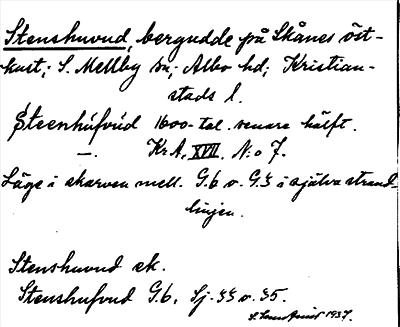 Stenshuvud, bergudde på Skånes öst-
kust; S. Mellby sn; Albo hd; Kristian-
stads l.
Steenhúfvúd 1600-tal. senare hälft.
—. Kr.A. XVII. N:o 7.
Läge i skarven mell. G.6 o. G.3 i själva strand-
linjen.
Stenshuvud sk.
Stenshufvud G.6, Sj. 33 o. 35.
1937.